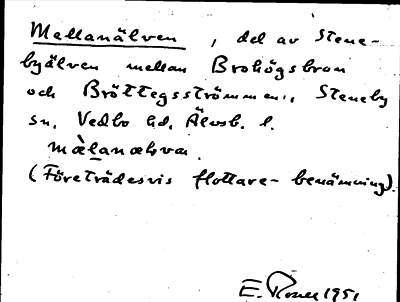 Mellanälven, del av Stene-
byälven mellan Brohögsbron
och Bröttegsströmmen., Steneby
sn, Vedbo hd, Älvsb. l.
(Företrädesvis flottare-benämning).
E. 1951